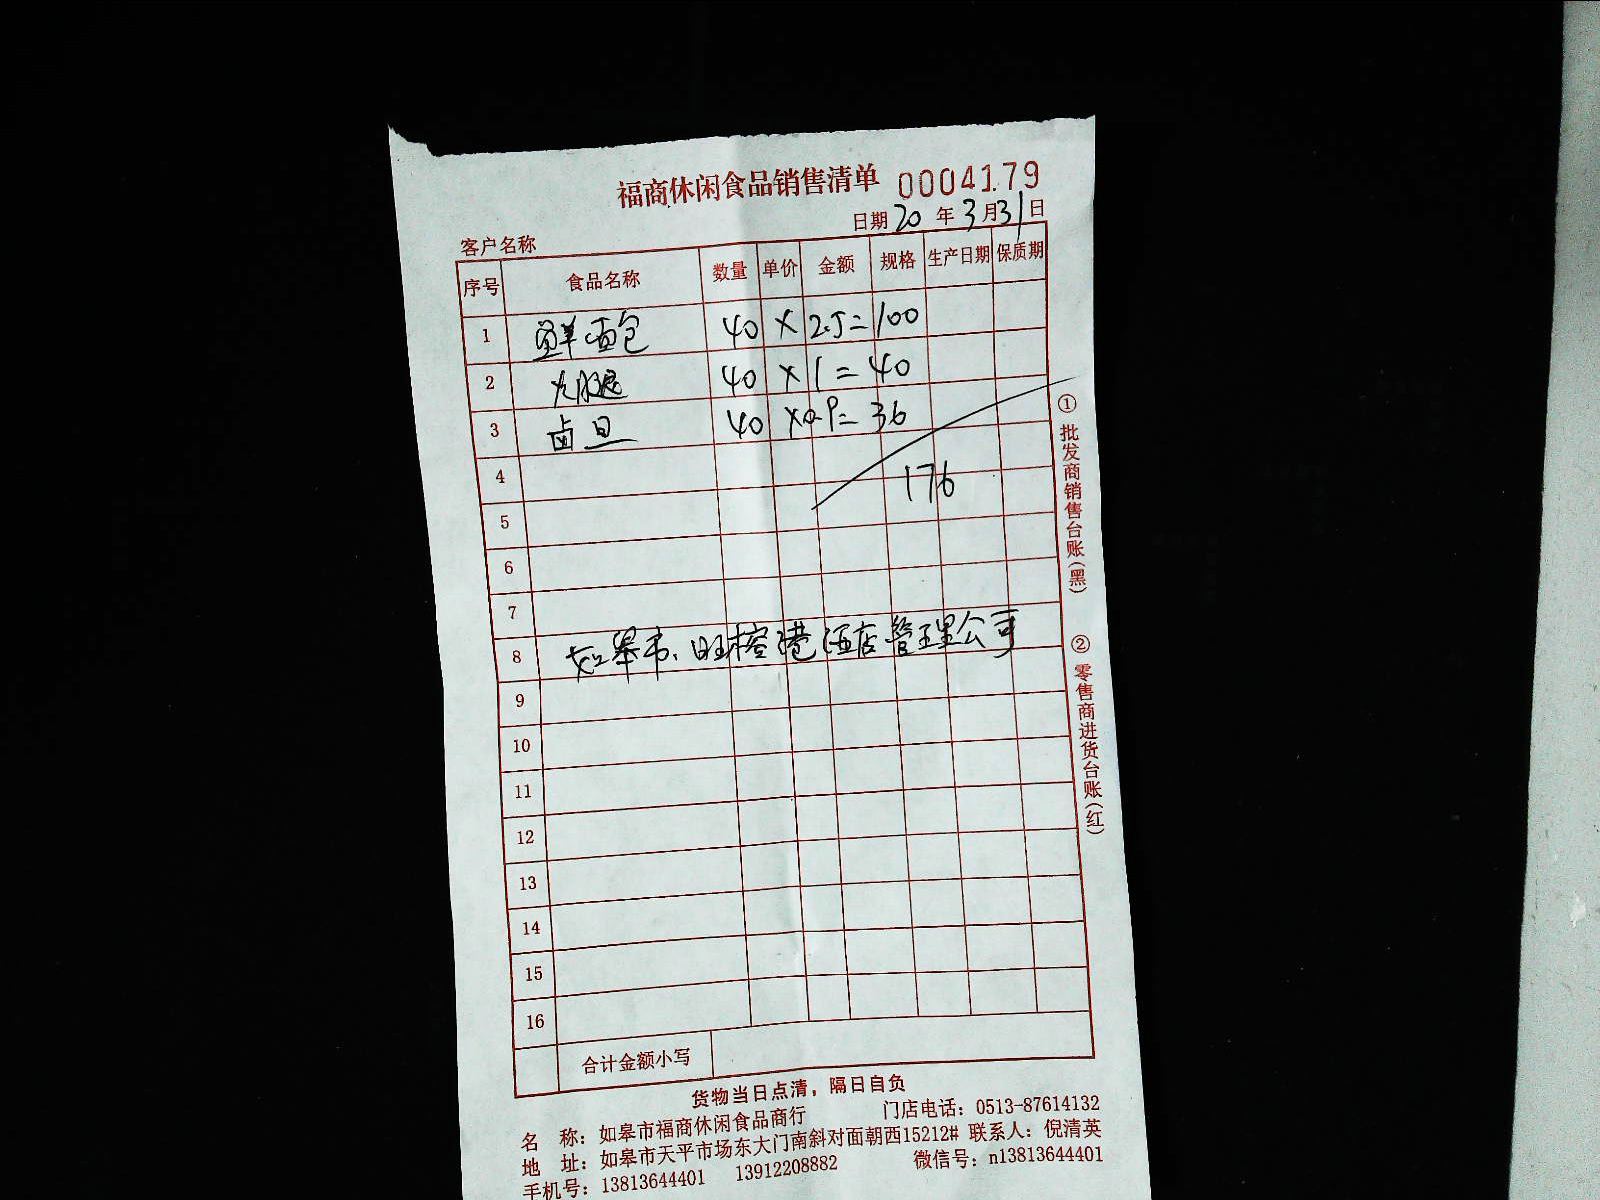 福商休闲食品销售清单 0004179
日期 20 年 3 月 31 日
客户名称
序号 食品名称 数量 单价 金额 规格 生产日期 保质期
1 鲜面包 40 × 2.5 = 100
2 火腿 40 × 1 = 40
3 卤旦 40 × 0.9 = 36
4
176
5
6
7
8 如皋市旺榕港酒店管理公司
9
10
11
12
13
14
15
16
合计金额小写
①批发商销售台账(黑)
②零售商进货台账(红)
货物当日点清，隔日自负
名 称：如皋市福商休闲食品商行 门店电话：0513-87614132
地 址：如皋市天平市场东大门南斜对面朝西15212# 联系人：倪清英
手机号：13813644401 13912208882 微信号：n13813644401